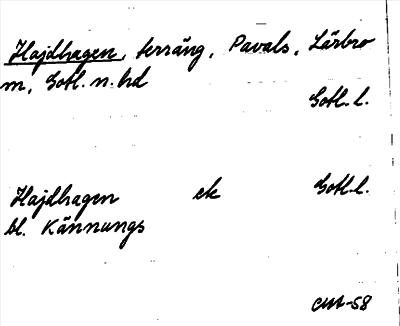 Hajdhagen, terräng, Pavals, Lärbro
m, Gotl. n. hd
Gotl. l.
Hajdhagen ek Gotl. l.
bl. Kännungs
CM-58